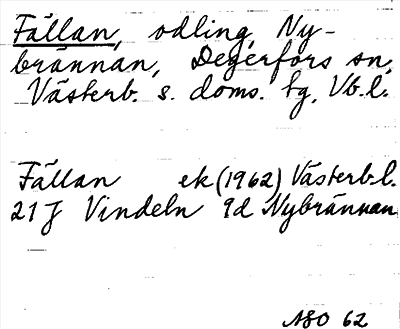 Fällan, odling, Ny-
brännan, Degerfors sn,
Västerb. s. doms. tg, Vb.l.
Fällan ek (1962) Västerb.l.
21J Vindeln 9d Nybrännan
NSO 62